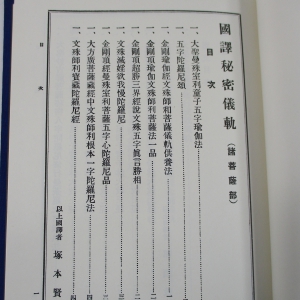 國譯秘密儀軌(諸菩薩部)
目次
一、大聖曼殊室利童子五字瑜伽法
五字陀羅尼頌
一、金剛頂瑜伽經文殊師利菩薩儀軌供養法
一、金剛頂瑜伽文殊師利菩薩法一品
一、金剛頂超勝三界經說文殊五字眞言勝相
文殊滅婬欲我慢陀羅尼
一、金剛頂經曼殊室利菩薩五字心陀羅尼品
一、大方廣菩薩藏經中文殊師利根本一字陀羅尼法
一、文殊師利寶藏陀羅尼經
以上國譯者 塚本賢
目次
一